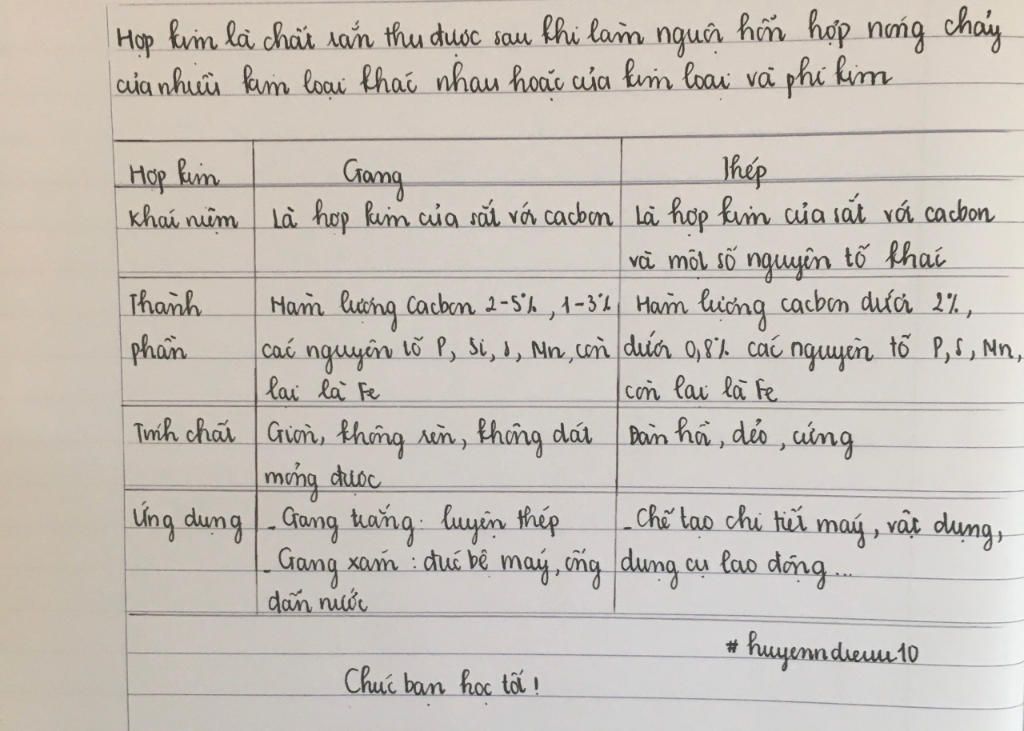 Hợp kim là chất rắn thu được sau khi làm nguội hỗn hợp nóng chảy
của nhiều kim loại khác nhau hoặc của kim loại và phi kim
Hợp kim Gang Thép
Khái niệm Là hợp kim của sắt với cacbon Là hợp kim của sắt với cacbon
và một số nguyên tố khác
Thành Hàm lượng cacbon 2-5%, 1-3% Hàm lượng cacbon dưới 2%,
phần các nguyên tố P, Si, S, Mn, còn dưới 0,8% các nguyên tố P, S, Mn,
lại là Fe còn lại là Fe
Tính chất Giòn, không rèn, không dát Đàn hồi, dẻo, cứng
mỏng được
Ứng dụng - Gang trắng: luyện thép - Chế tạo chi tiết máy, vật dụng,
- Gang xám: đúc bệ máy, ống dụng cụ lao động...
dẫn nước
#huyenndieuu10
Chúc bạn học tốt!